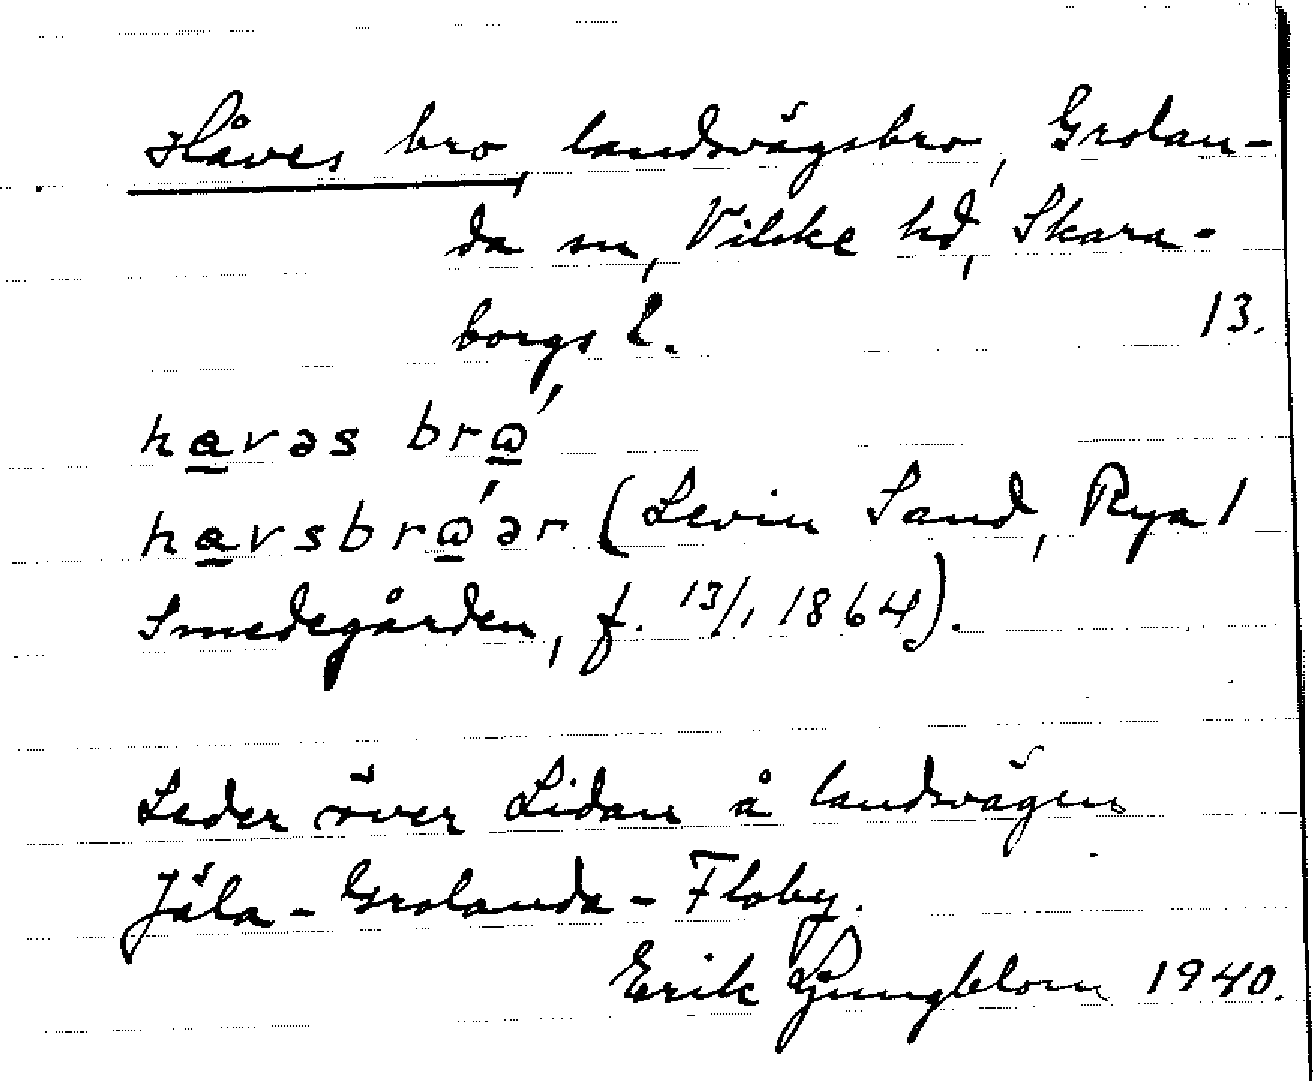 Håves bro, landsvägsbro, Grolan-
da sn, Vilske hd, Skara-
borgs l.
13.
havəs brω´
havsbrω´ər (Levin Sand, Rya 1
Smedegården, f. 13/1 1864).
Leder över Lidan å landsvägen
Jäla - Grolanda - Floby.
Erik Ljungblom 1940.